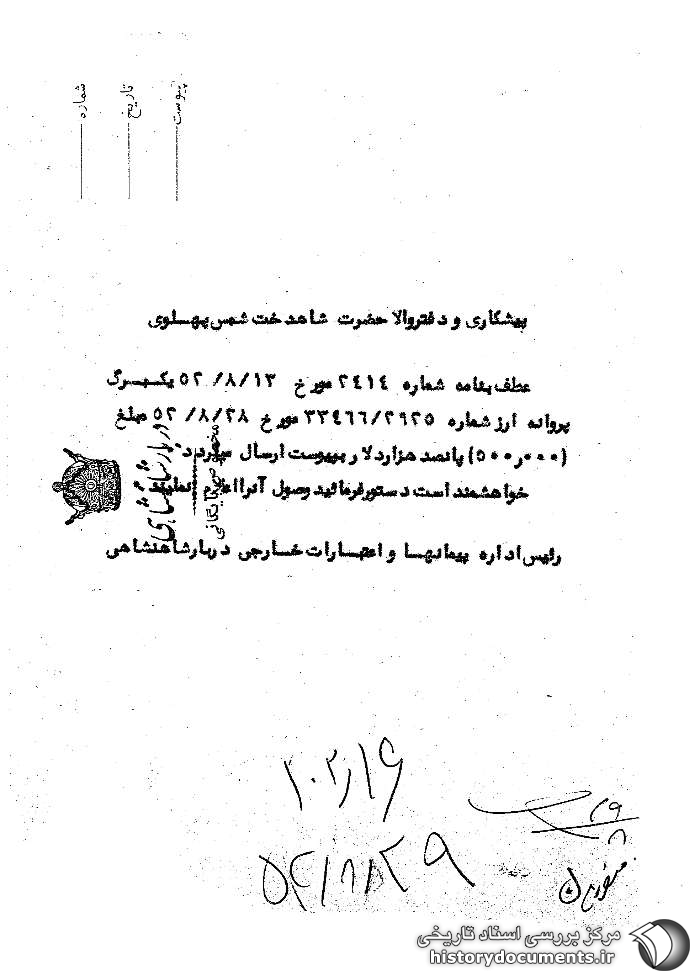 شماره
تاریخ
پیوست
پیشکاری و دفتر والا حضرت شاهدخت شمس پهلوی
عطف بنامه شماره ۲۴۱۴ مورخ ۵۲/۸/۱۳ یکبرگ
پروانه ارز شماره ۳۳۴۶۶/۲۹۲۵ مورخ ۵۲/۸/۲۸ مبلغ
(۵۰۰٫۰۰۰) پانصد هزار دلار بپیوست ارسال میگردد.
خواهشمند است دستور فرمائید وصول آنرا اعلام نمایند
دربار شاهنشاهی
مخصوص بایگانی
رئیس اداره پیمانها و اعتبارات خارجی دربار شاهنشاهی
۵۲/۸/۲۹
مرکز بررسی اسناد تاریخی
historydocuments.ir